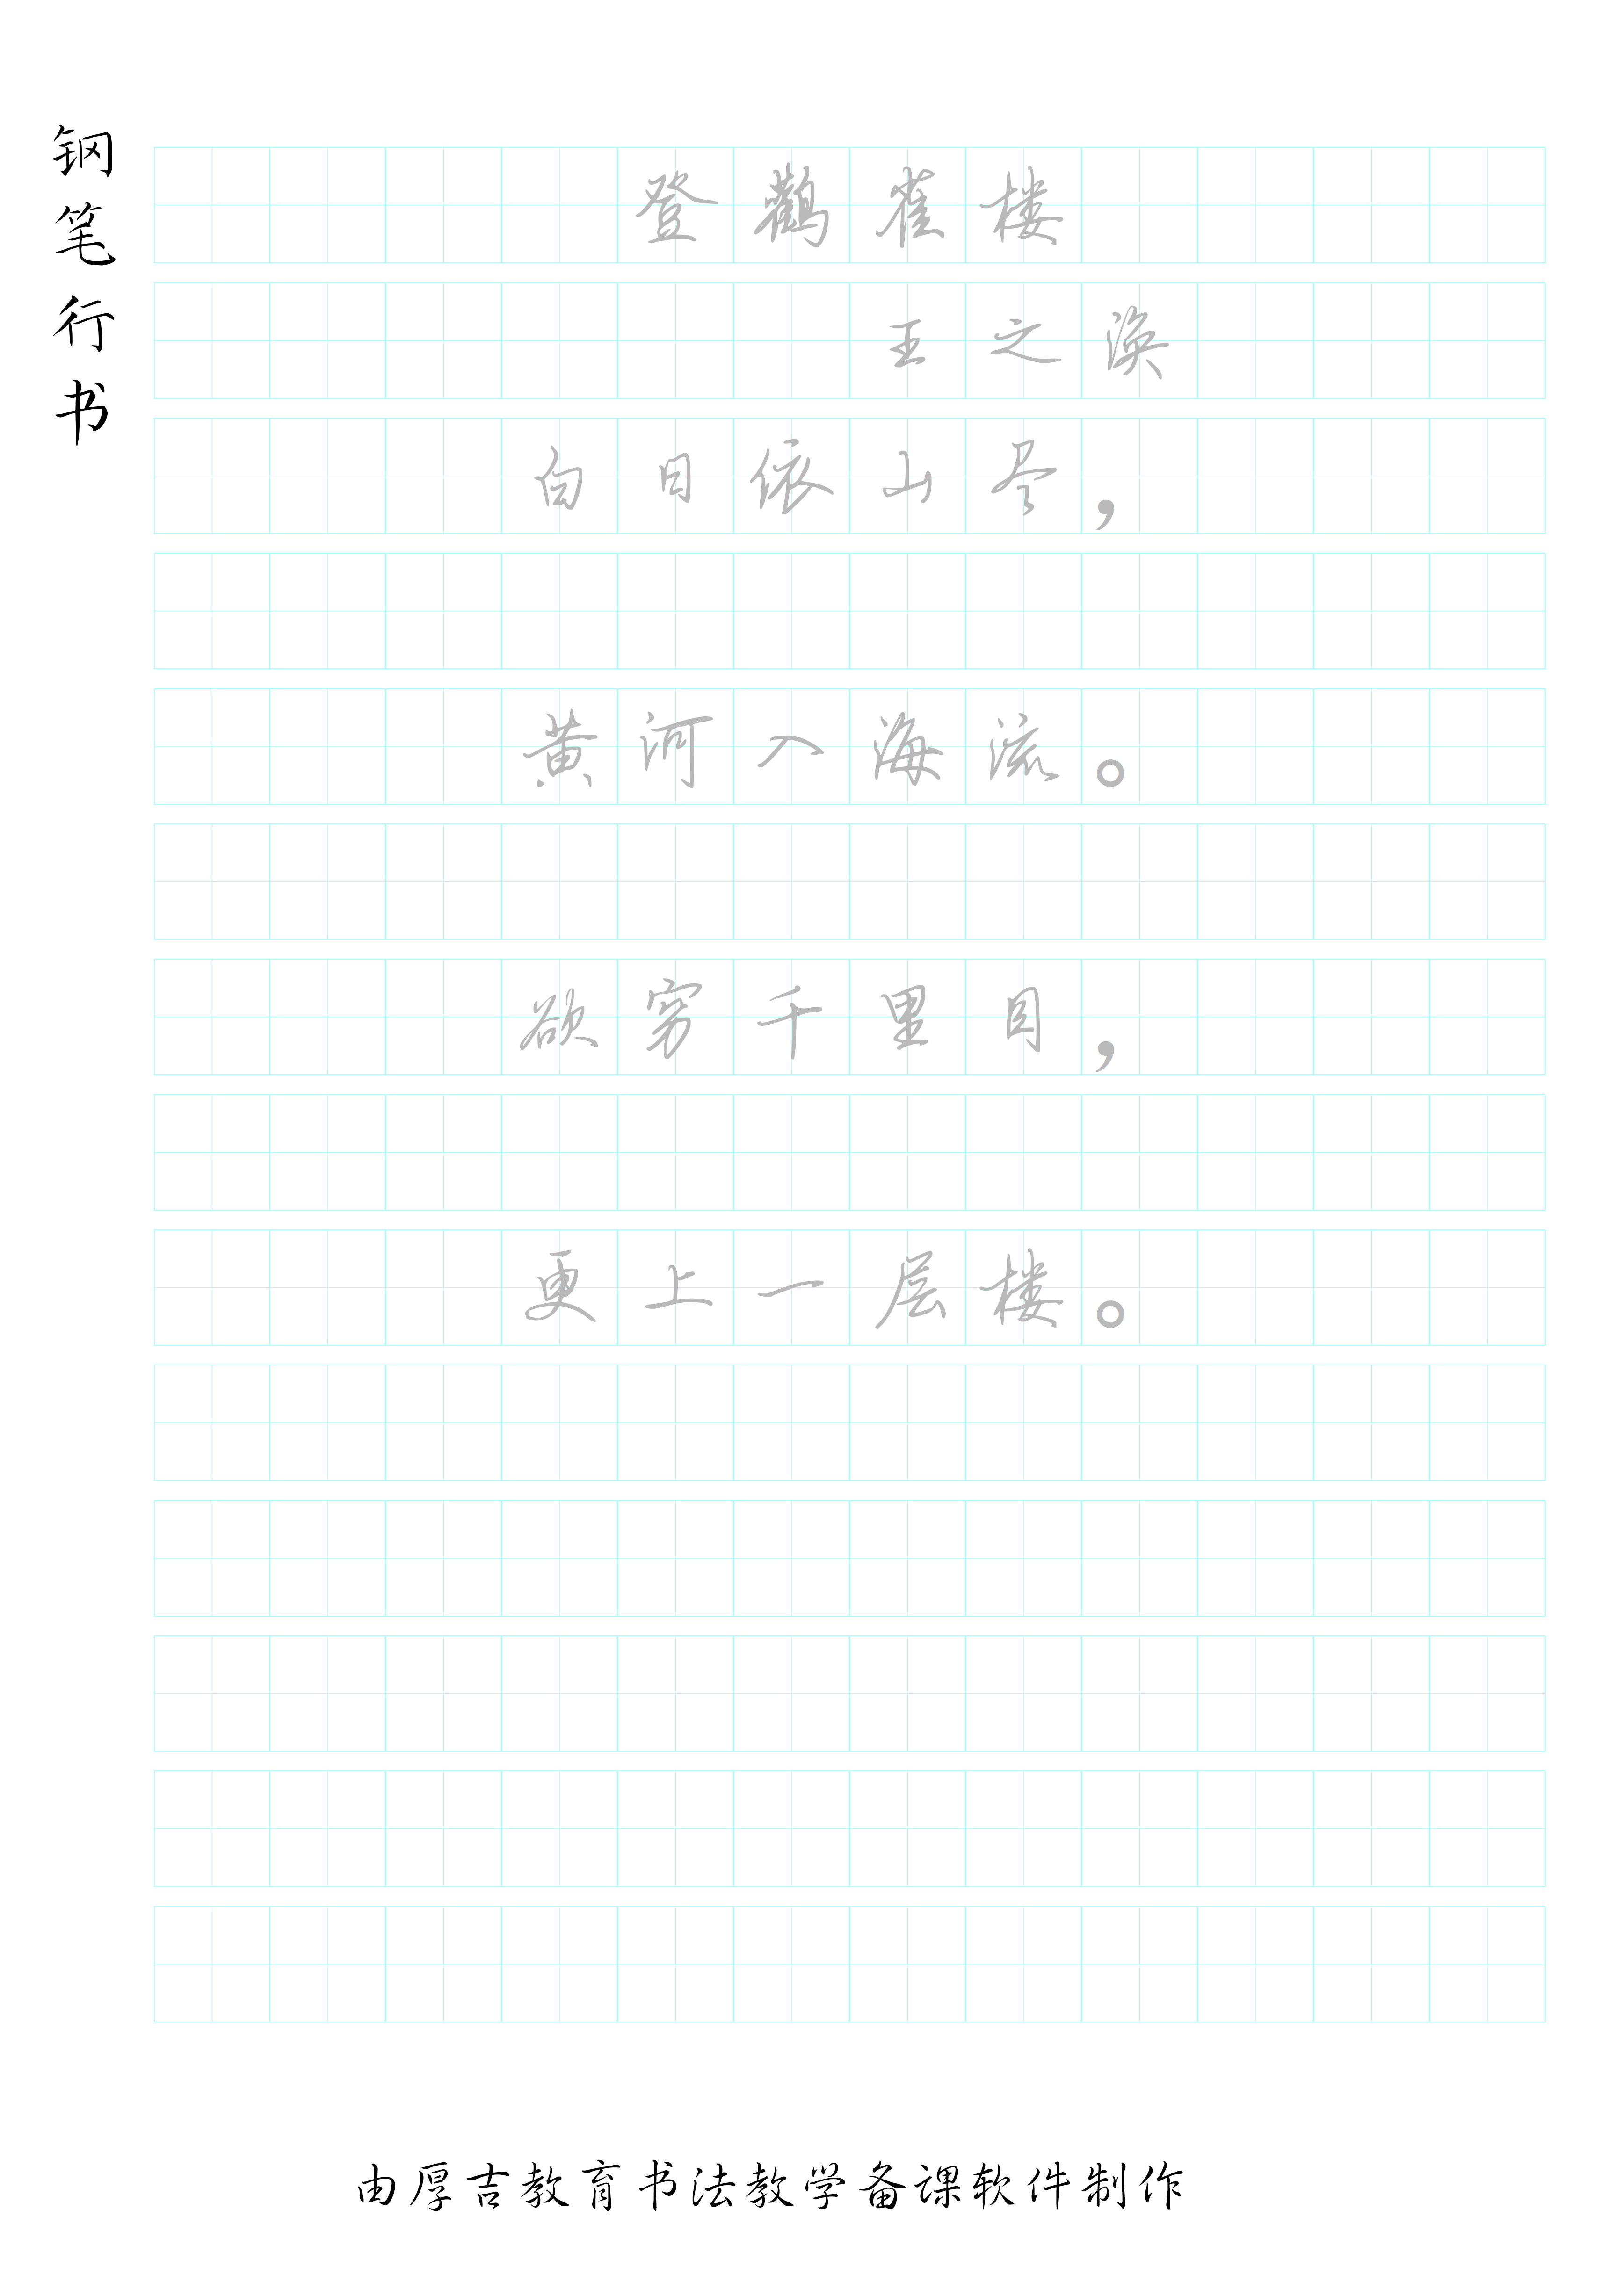 钢笔行书
登鹳雀楼
王之涣
白日依山尽，
黄河入海流。
欲穷千里目，
更上一层楼。
由厚吉教育书法教学备课软件制作